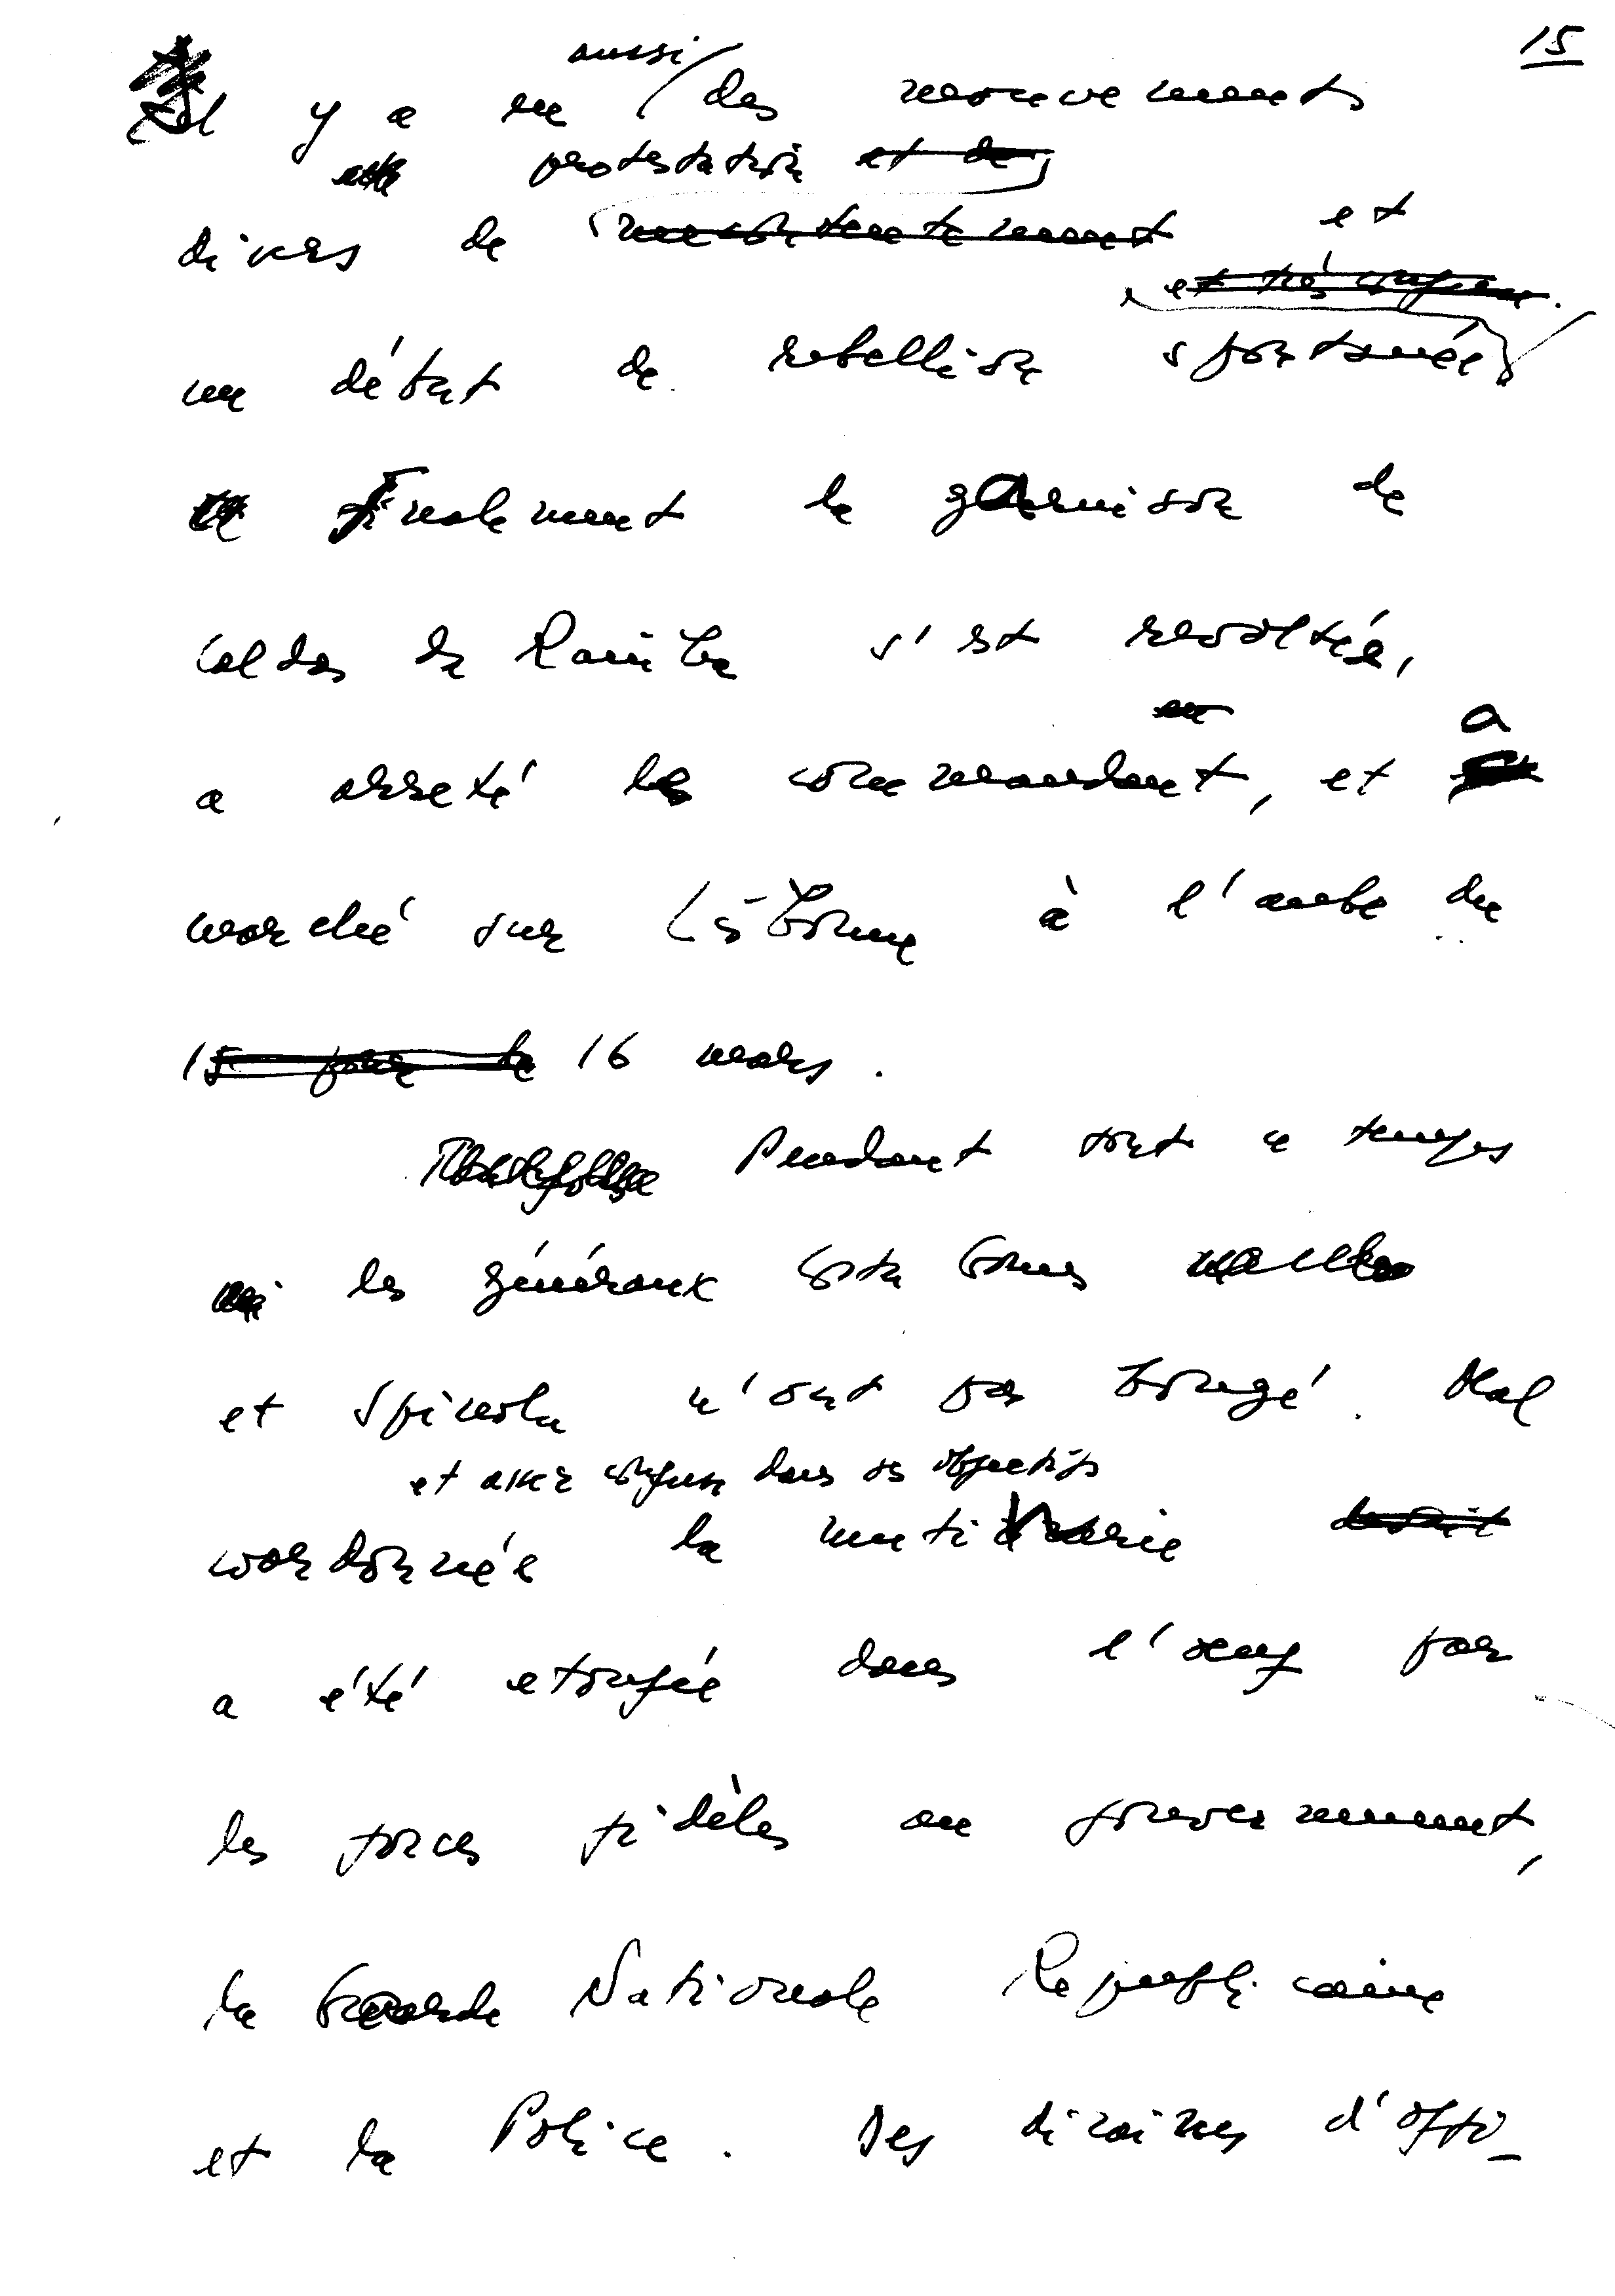 15
aussi
Il y a eu des mouvements
protestation et de
divers de mecontentement et
et très confuse.
un début de rebellion spontanée
Finalement la garnison de
Caldas da Rainha s'est revoltée,
a arreté le commandant, et a
marché sur Lisbonne à l'aube du
15 pour le 16 mars.
Pendant tout ce temps
les généraux Costa Gomes
et Spinola n'ont pas bougé. Mal
et assez confuse dans ses objectifs
coordonnée la mutinerie
a été etouffée dans l'oeuf par
les forces fidèles au gouvernement,
la Garde Nationale Republicaine
et la Police. Des dizaines d'offi-